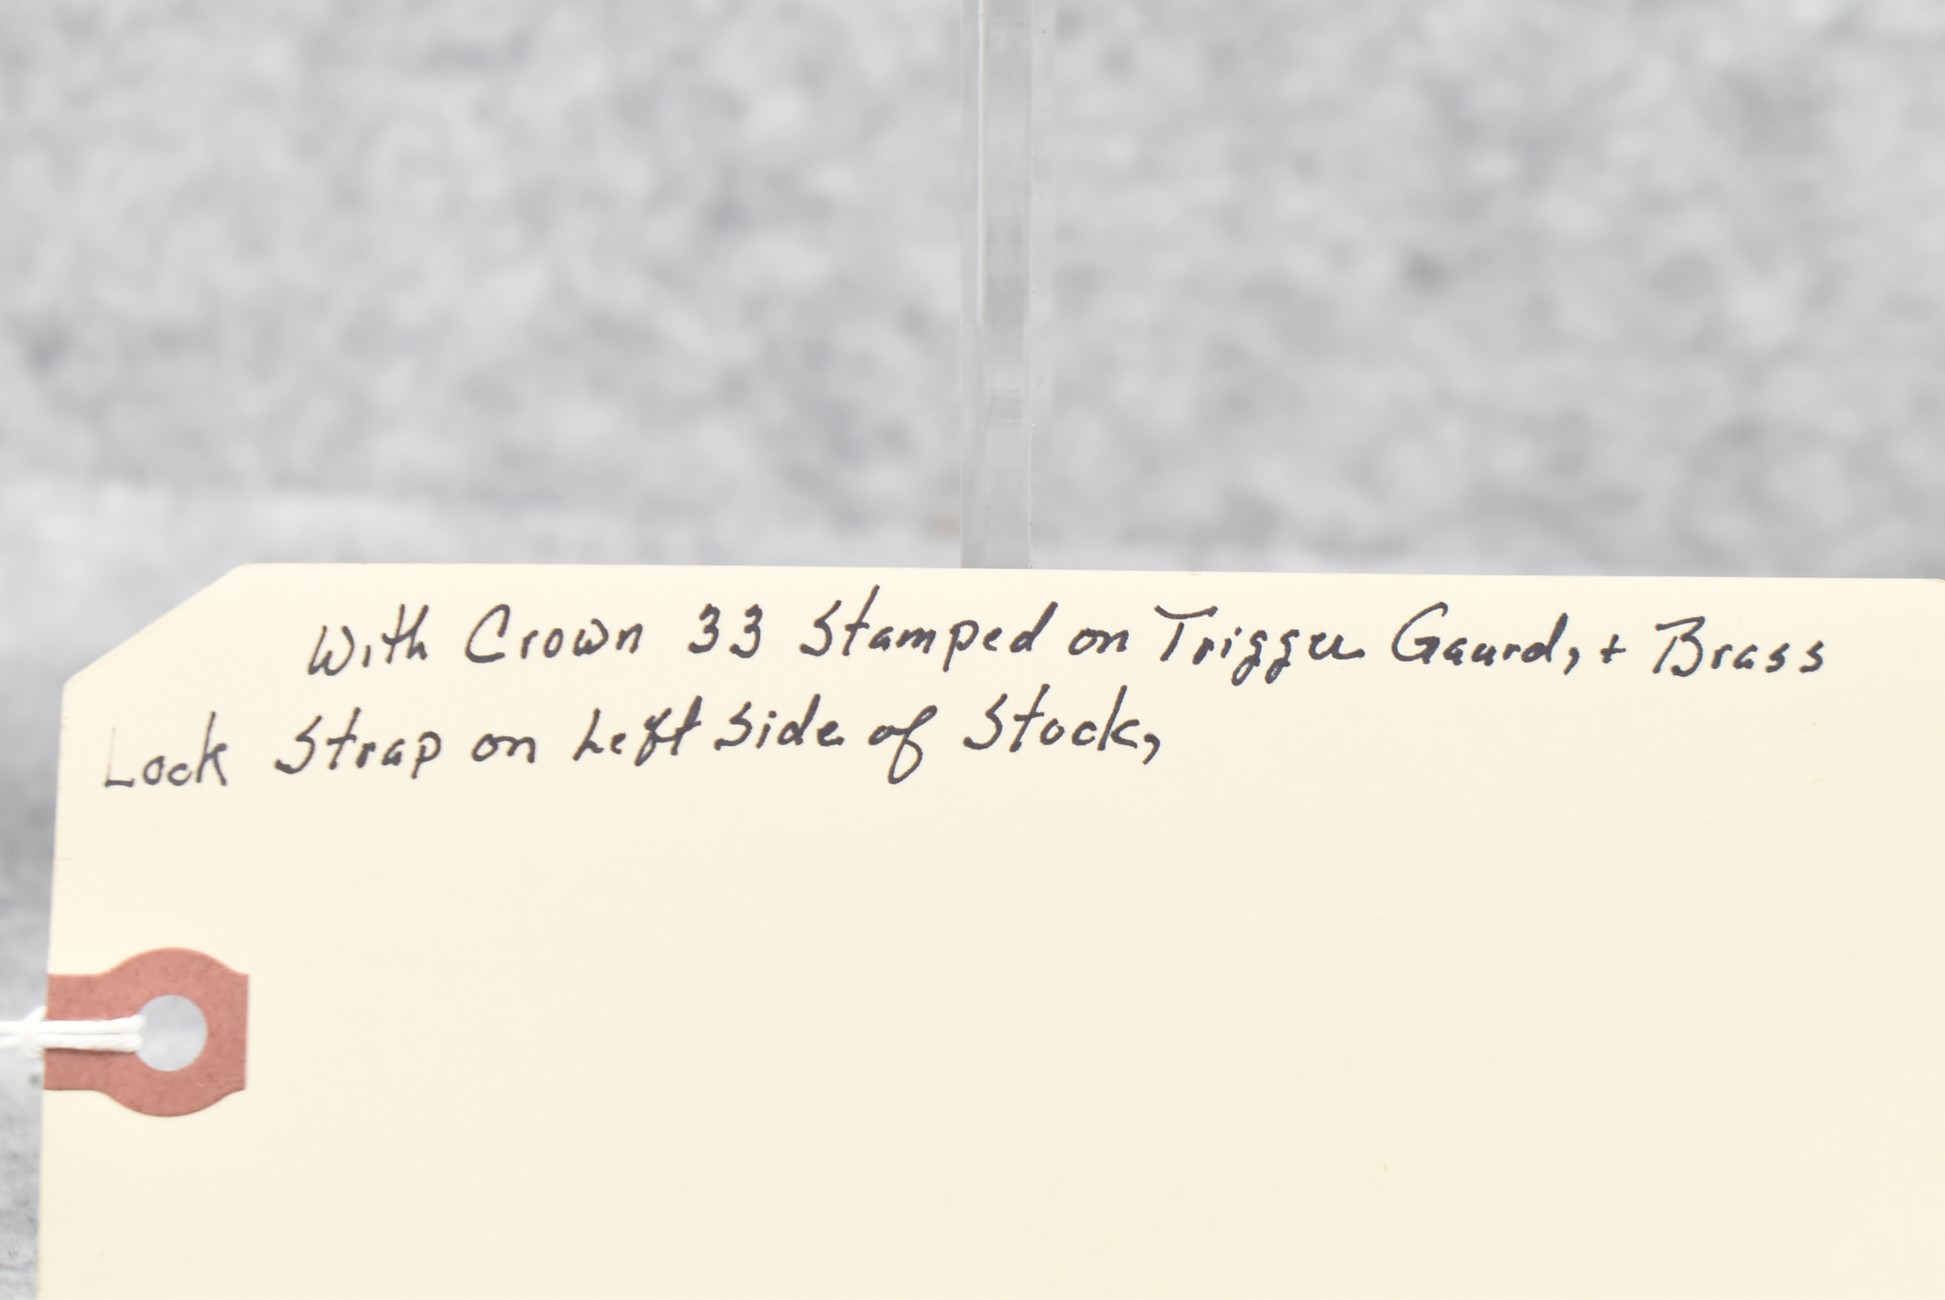 With Crown 33 Stamped on Trigger Gaurd, + Brass
Lock Strap on Left Side of Stock,